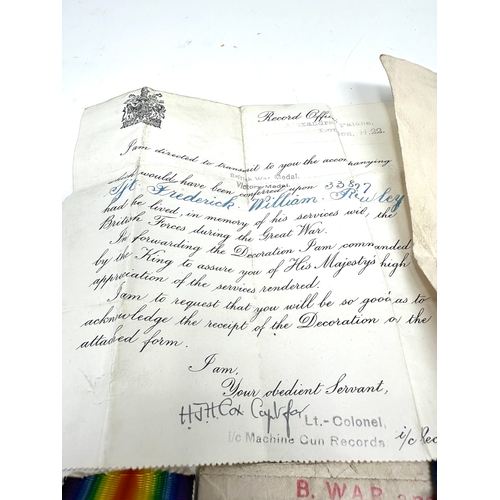 Record Office
Alexandra Palace,
London, N.22.
I am directed to transmit to you the accompanying
British War Medal.
Victory Medal.
which would have been conferred upon 33897
Sjt Frederick William Rowley
had he lived, in memory of his services with the
British Forces during the Great War.
In forwarding the Decoration I am commanded
by the King to assure you of His Majesty's high
appreciation of the services rendered.
I am to request that you will be so good as to
acknowledge the receipt of the Decoration on the
attached form.
I am,
Your obedient Servant,
H.J.H. Cox Capt for
Lt.-Colonel,
i/c Machine Gun Records.
i/c Rec
B. WAR